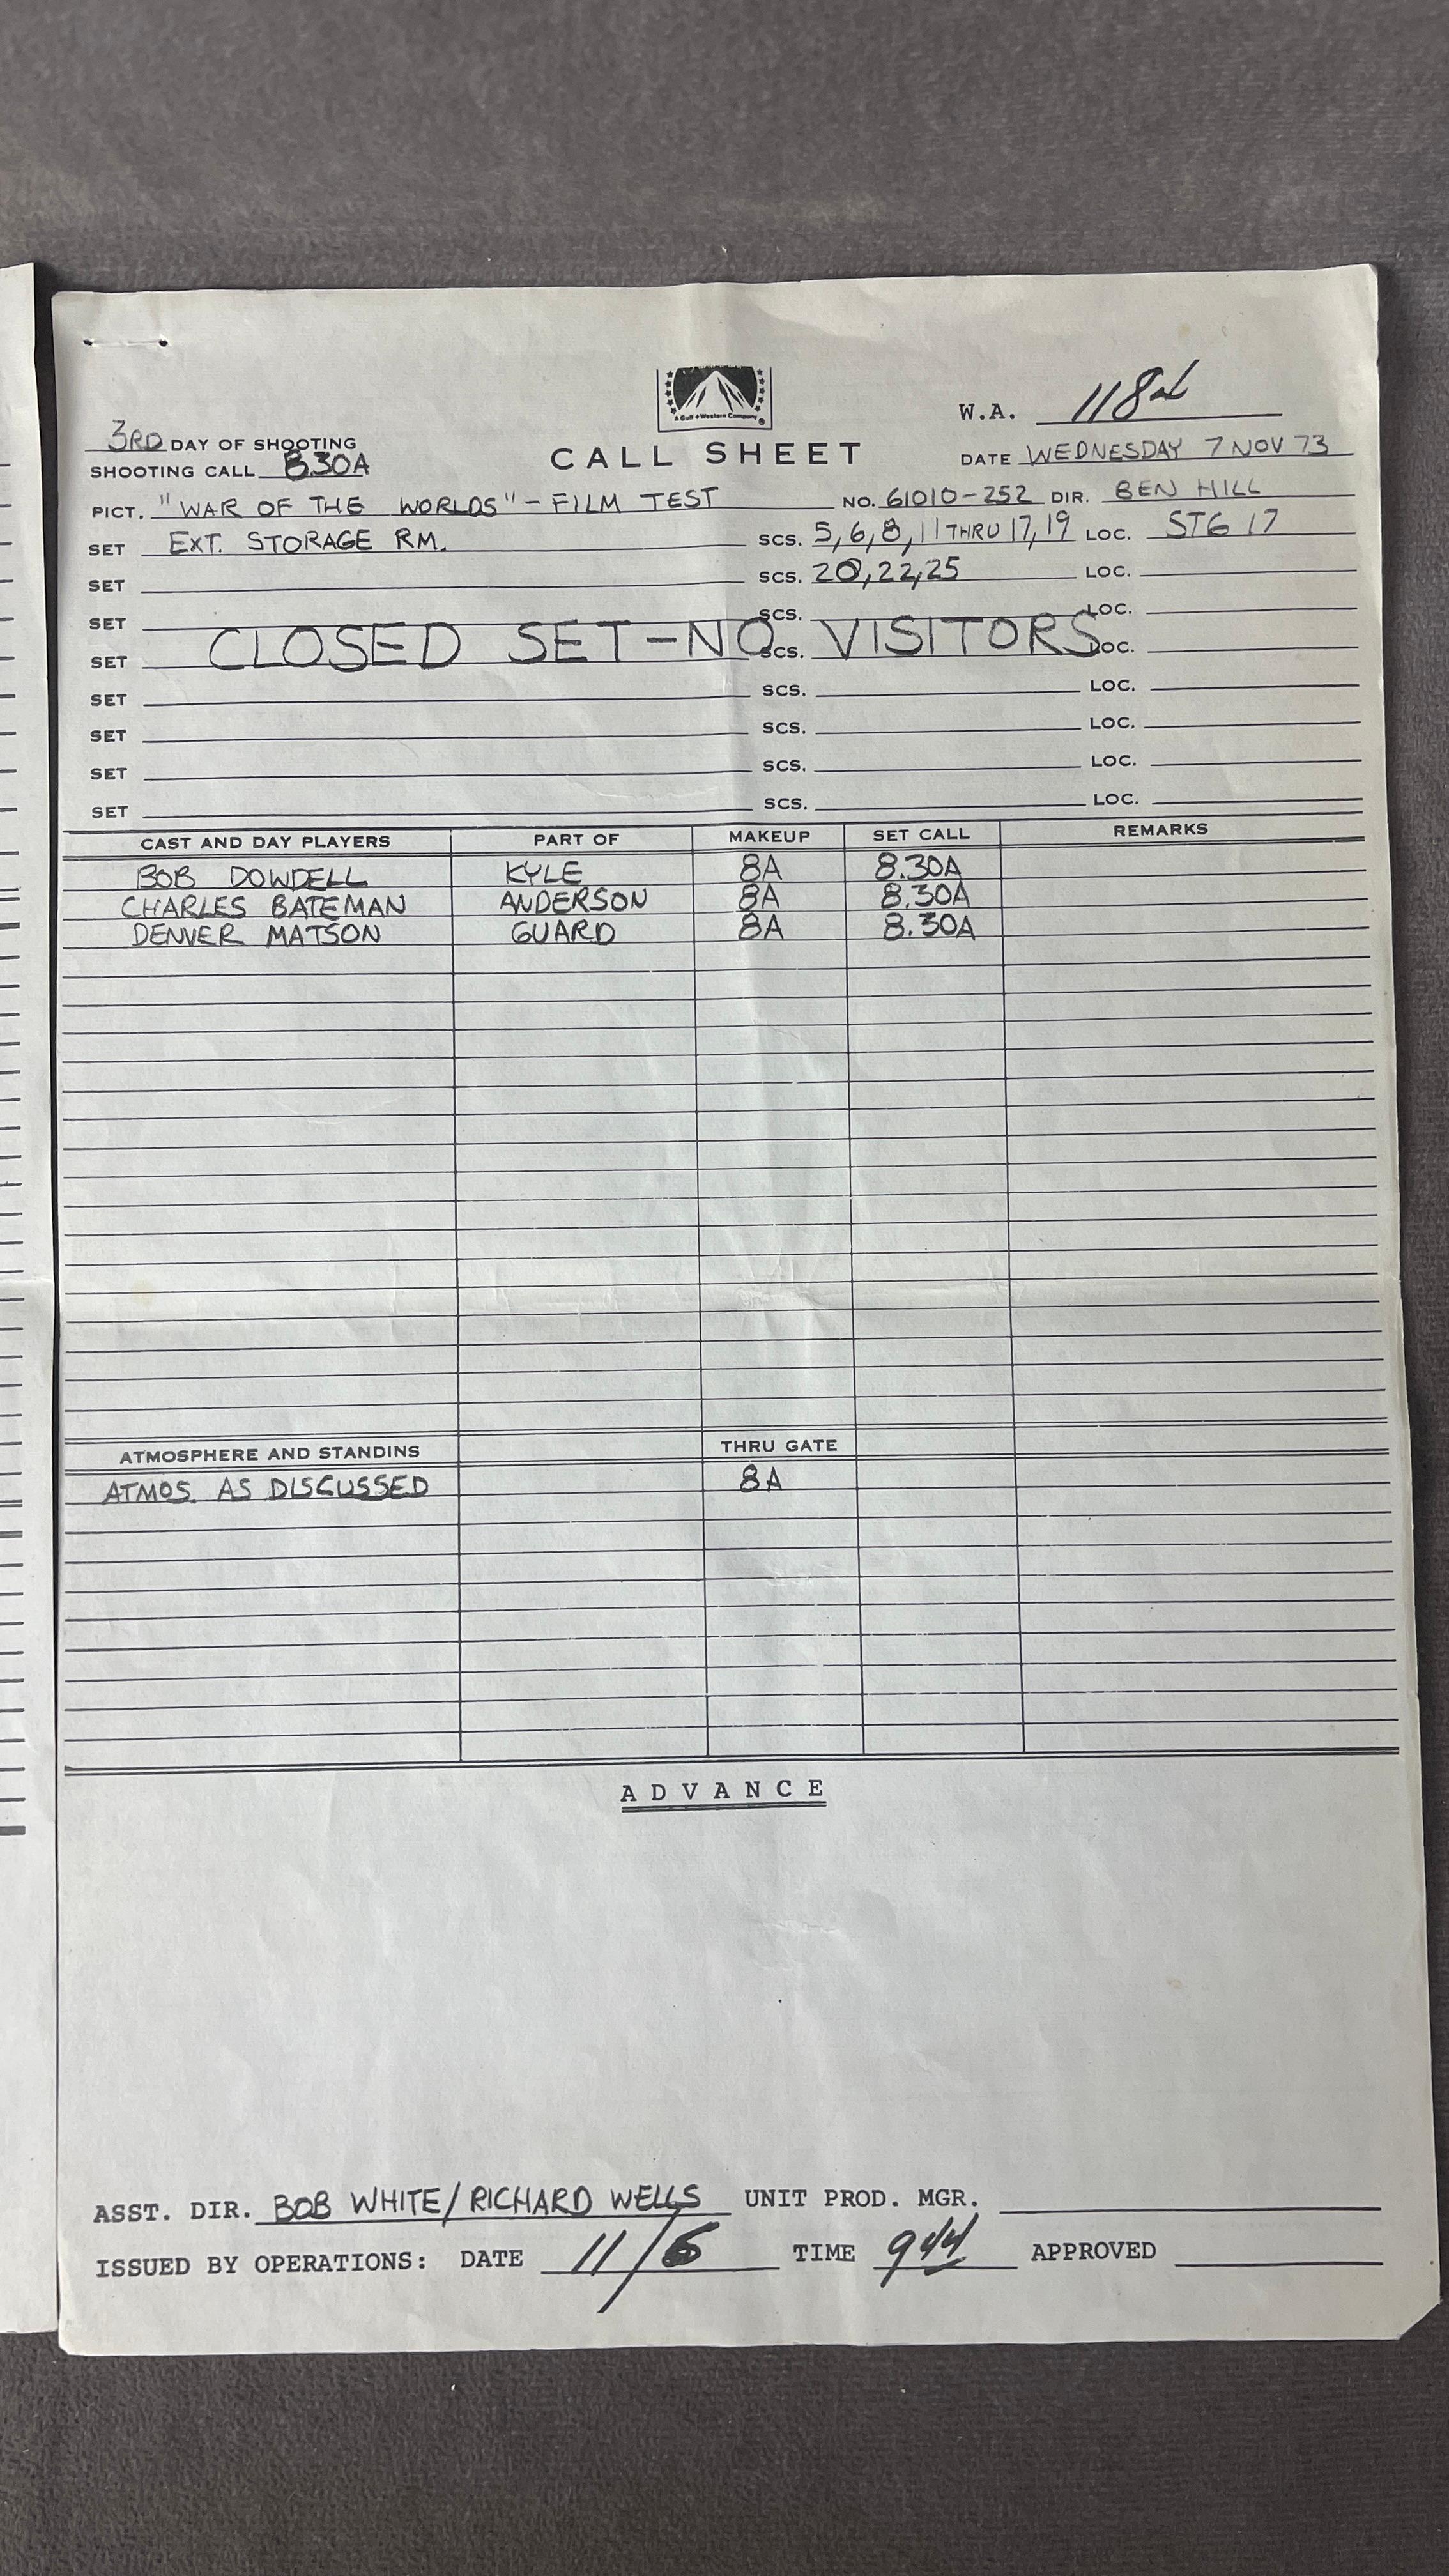 A Gulf + Western Company
W.A. 118
3RD DAY OF SHOOTING
SHOOTING CALL 8.30A
CALL SHEET
DATE WEDNESDAY 7 NOV 73
PICT. "WAR OF THE WORLDS" - FILM TEST NO. 61010-252 DIR. BEN HILL
SET EXT. STORAGE RM. SCS. 5,6,8,11 THRU 17,19 LOC. STG 17
SET SCS. 20,22,25 LOC.
SET SCS. LOC.
CLOSED SET-NO VISITORS
SET SCS. LOC.
SET SCS. LOC.
SET SCS. LOC.
SET SCS. LOC.
SET SCS. LOC.
CAST AND DAY PLAYERS PART OF MAKEUP SET CALL REMARKS
BOB DOWDELL KYLE 8A 8.30A
CHARLES BATEMAN ANDERSON 8A 8.30A
DENVER MATSON GUARD 8A 8.30A
ATMOSPHERE AND STANDINS THRU GATE
ATMOS. AS DISCUSSED 8A
ADVANCE
ASST. DIR. BOB WHITE/RICHARD WELLS UNIT PROD. MGR.
ISSUED BY OPERATIONS: DATE 11/6 TIME 944 APPROVED